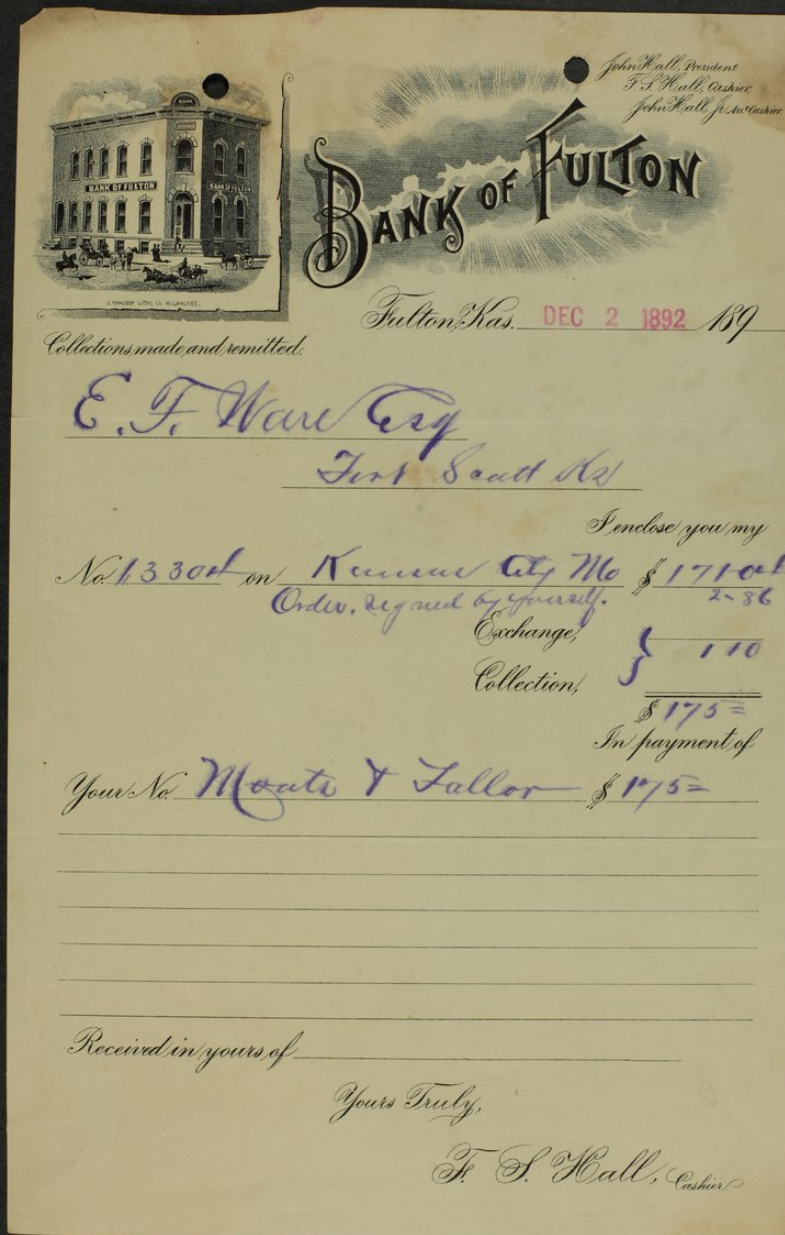 John Hall, President
F. S. Hall, Cashier,
John Hall, Jr. Ass't Cashier
BANK
BANK OF FULTON
BANK OF FULTON
BANK OF FULTON
LITHO CO MILWAUKEE.
Fulton, Kas. DEC 2 1892 189
Collections made and remitted.
E. F. Ware Esq
Fort Scott Ks
I enclose you my
No. 1330 on Kansas City Mo $ 171 04
Order. signed by yourself. 2-86
Exchange,
1 10
Collection,
$ 175=
In payment of
Your No. Moats & $ 175=
Received in yours of
Yours Truly,
F. S. Hall, Cashier